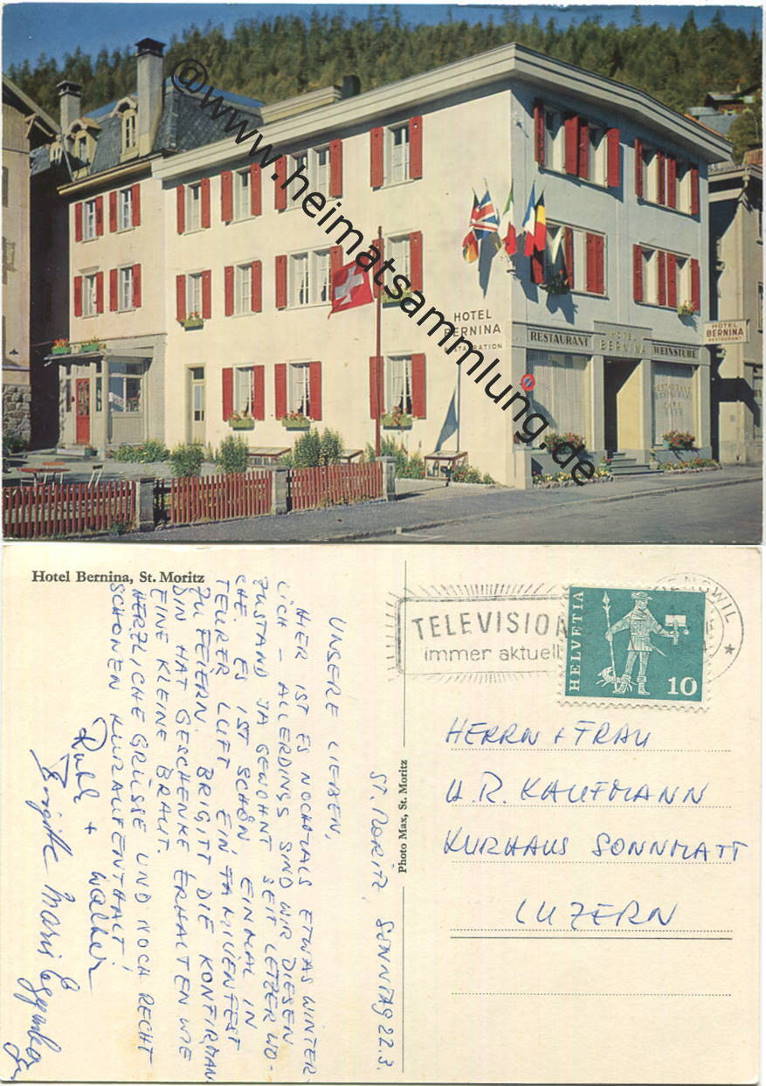 @www.heimatsammlung.de
HOTEL
BERNINA
RESTAURATION
RESTAURANT
HOTEL
BERNINA
WEINSTUBE
HOTEL
BERNINA
RESTAURANT
Hotel Bernina, St. Moritz
TELEVISION
immer aktuell
HELVETIA
10
HERRN + FRAU
U. R. KAUFMANN
KURHAUS SONNMATT
LUZERN
Photo Max, St. Moritz
ST. MORITZ, SONNTAG 22.3.
UNSERE LIEBEN,
HIER IST ES NOCHMALS ETWAS WINTER
LICH – ALLERDINGS SIND WIR DIESEN
ZUSTAND JA GEWOHNT SEIT LETZER WO-
CHE. ES IST SCHÖN EINMAL IN
TEURER LUFT EIN FAMILIENFEST
ZU FEIERN. BRIGITT DIE KONFIRMAN
DIN HAT GESCHENKE ERHALTEN WIE
EINE KLEINE BRAUT.
HERZLICHE GRÜSSE UND NOCH RECHT
SCHÖNEN KURAUFENTHALT!
Ruth + Walter
Brigitte Maris